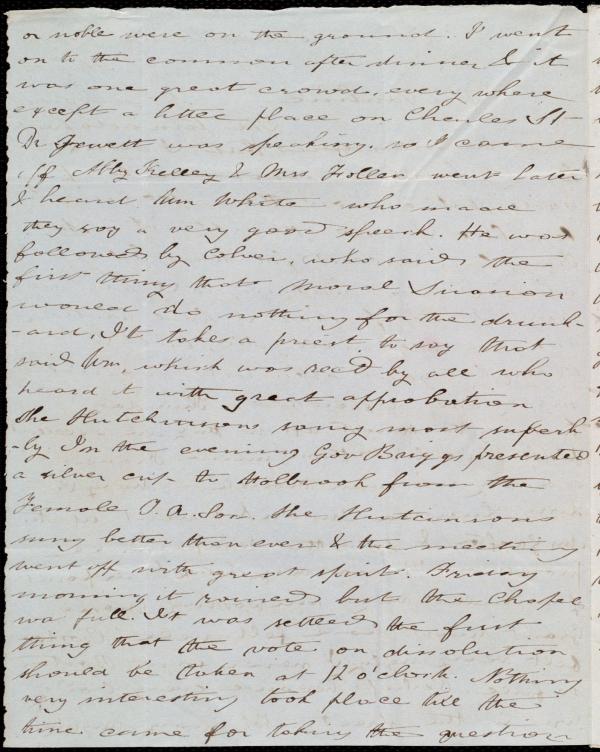 or noble were on the ground. I went
on to the common after dinner & it
was one great crowd, every where
except a little place on Charles St-
Dr Jewett was speaking, so I came
off Abby Kelley & Mrs Follen went later
& heard Wm White who made
they say a very good speech. He was
followed by Colver, who said the
first thing that Moral Suasion
would do nothing for the drunk-
-ard, It takes a priest to say that
said Wm, which was rec'd by all who
heard it with great approbation
The Hutchinsons sang most superb
-ly In the evening Gov Briggs presented
a silver cup to Holbrook from the
Female T. A. Soc. The Hutcinsons
sung better than ever & the meeting
went off with great spirit. Friday
morning it rained but the Chapel
wa full. It was settled the first
thing that the vote on dissolution
should be taken at 12 o'clock. Nothing
very interesting took place till the
time came for taking the question